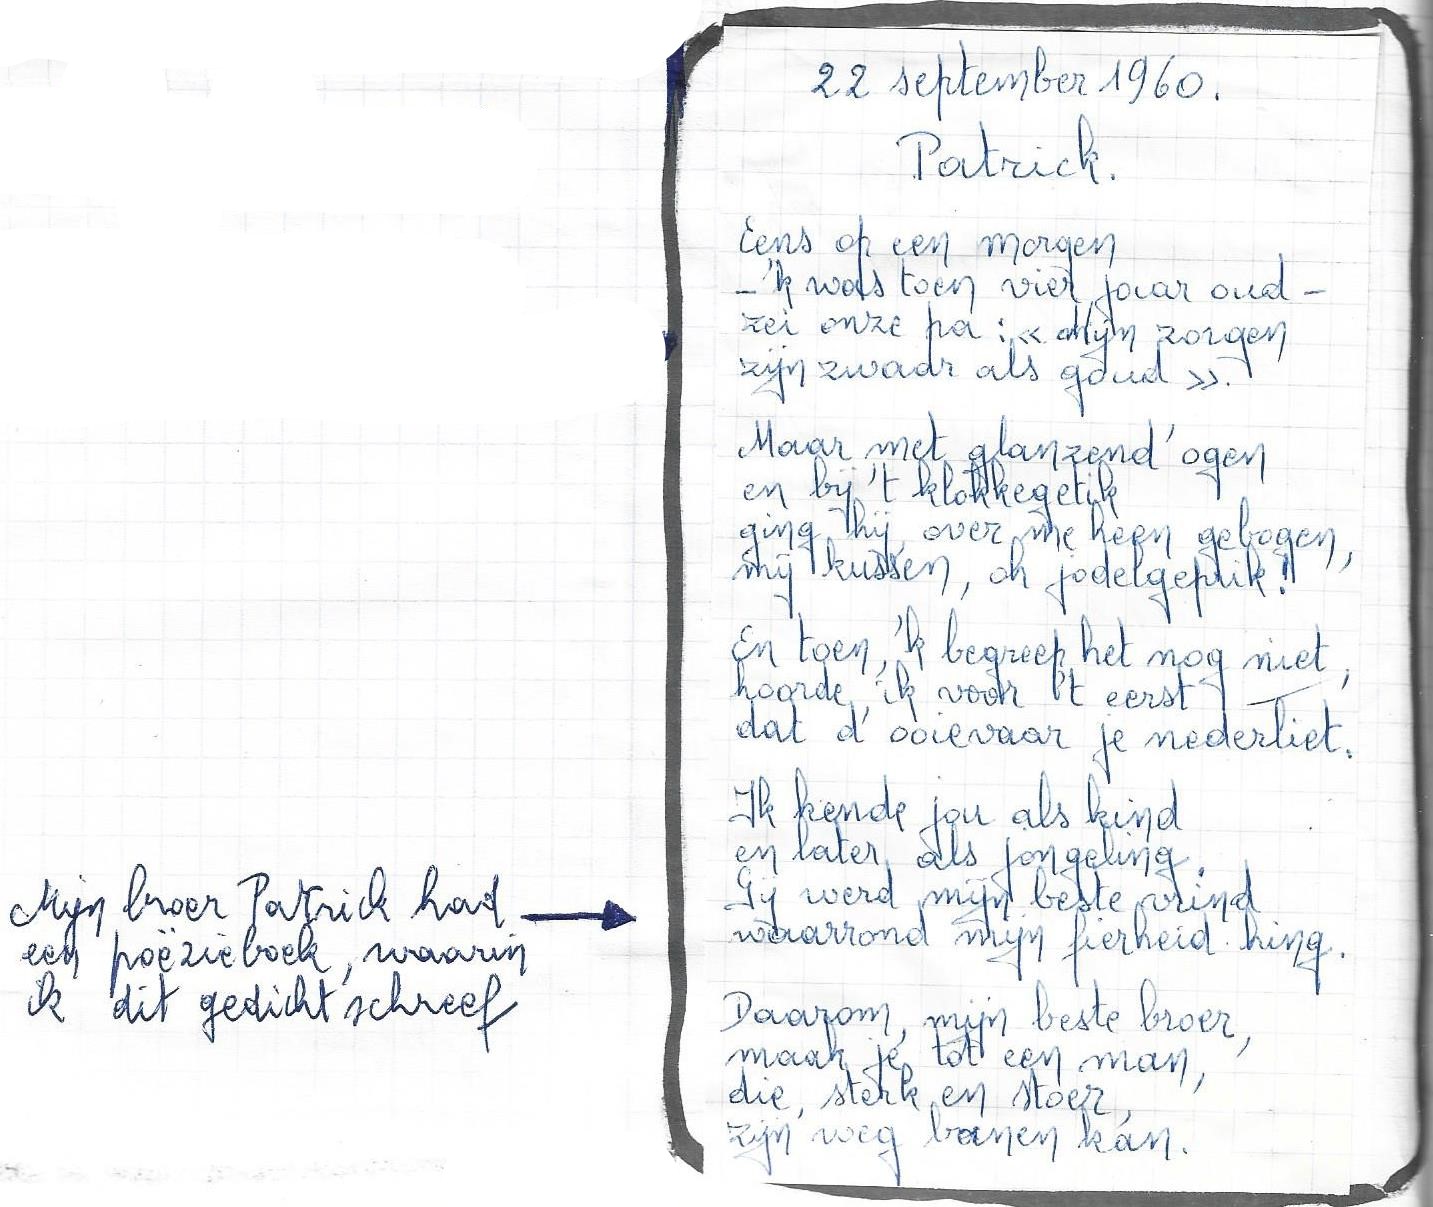 22 september 1960.
Patrick.
Eens op een morgen
- 'k was toen vier jaar oud -
zei onze pa : « Mijn zorgen
zijn zwaar als goud ».
Maar met glanzend' ogen
en bij 't klokkegetik
ging hij, over me heen gebogen,
mij kussen, oh jodelgeprik !
En toen, 'k begreep het nog niet,
hoorde ik voor 't eerst
dat d' ooievaar je nederliet.
Ik kende jou als kind
en later als jongeling.
Gij werd mijn beste vrind
waarrond mijn fierheid hing.
Daarom, mijn beste broer,
maak je tot een man,
die, sterk en stoer,
zijn weg banen kan.
Mijn broer Patrick had
een poëzieboek, waarin
ik dit gedicht schreef